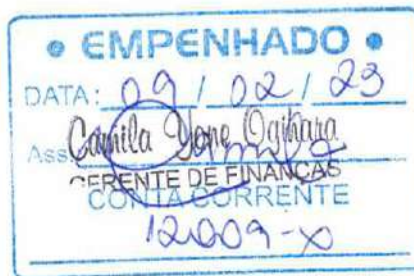 • EMPENHADO •
DATA: 09 / 02 / 23
Ass:
Camila Yone Ogihara
GERENTE DE FINANÇAS
CONTA CORRENTE
12009-X